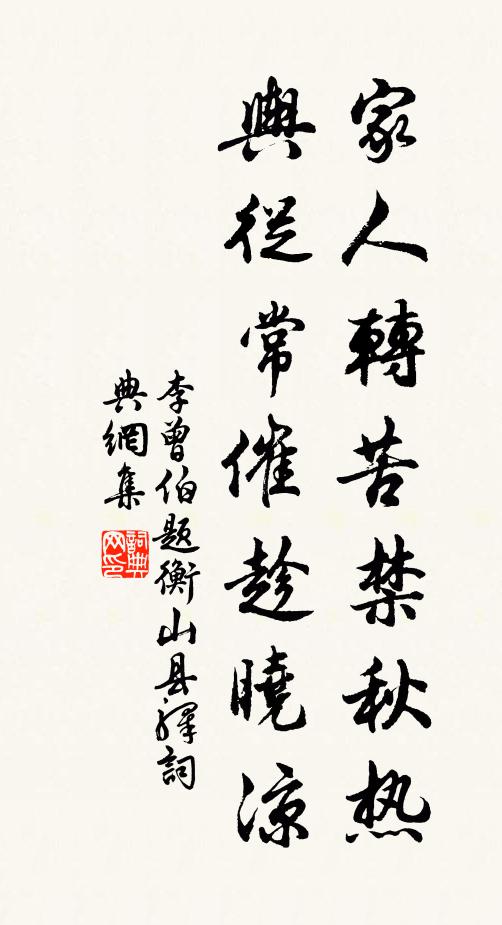 家人轉苦禁秋热
舆從常催趁曉涼
李曾伯题衡山县驛詞
典網集
詞典
网印